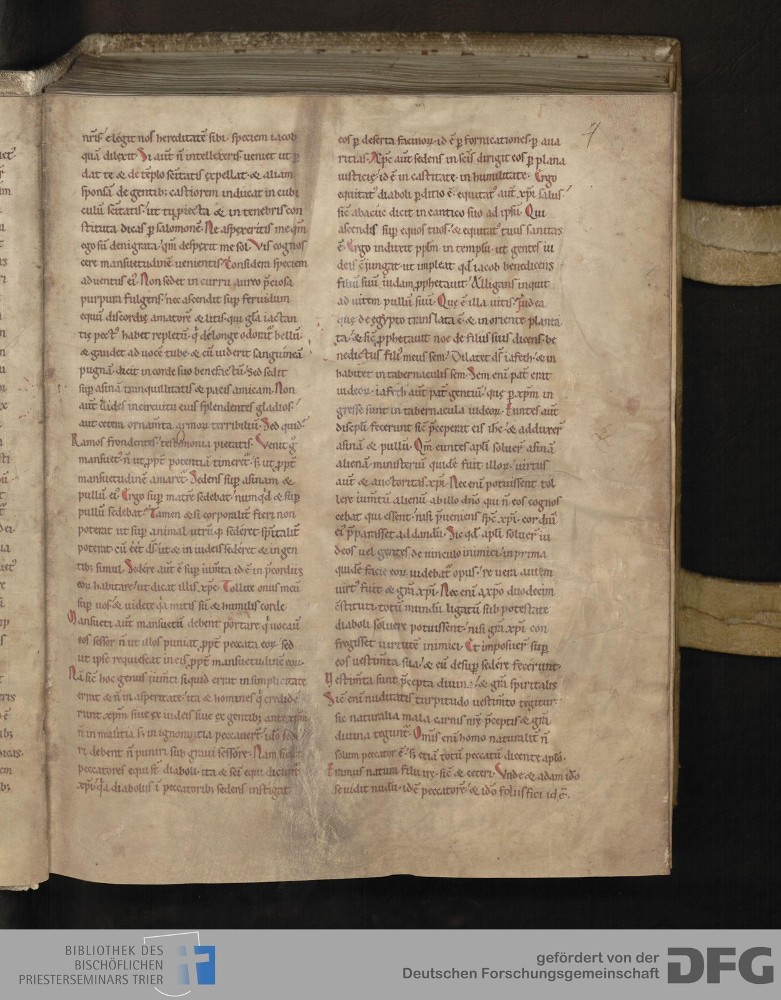 nr̄īs elegit nos hereditatē sibi· speciem iacob
quā dilexit· Si aut̄ n̄ intellexeris veniet ut ꝑ
dat te & de tēplo sc̄itatis expellat· & aliam
sponsā de gentib; castiorem inducat in cubi
culū sc̄itatis· ut tu ꝓiecta & in tenebris con
stituta dicas ꝑ salomonē· Ne aspexeritis me qm̄
ego sū denigrata· qm̄ despexit me sol· Vis cognos
cere mansuetudinē venientis· Considera speciem
aduentis ei· Non sedet in curru aureo p̄ciosa
purpura fulgens· nec ascendit sup feruidum
equū discordie amatorē & litis· qui gl̄a iactan
tie pect' habet repletū· q' de longe odorat' bellū·
& gaudet ad uocē tube· & cū uiderit sanguineā
pugnā· dicit in corde suo bene factū· Sed sedit
sup asinā tranquillitatis & pacis amicam· Non
aut̄ uides in circuitu eius splendentes gladios·
aut cetera ornam̄ta armoꝝ terribiliū· Sed quid·
Ramos frondentes· testimonia pietatis· Venit g°
mansuet' n̄ ut ꝓpt̄ potentiā timeret̄· s; ut ꝓpt̄
mansuetudinē amaret̄· Sedens sup asinam &
pullū ei'· Ergo sup matrē sedebat· numqd & sup
pullū sedebat· Tamen & si corporalit̄ fieri non
poterat ut sup animal utrūq; sederet· sp̄italit̄
poterat cū eēt ds̄· ut & in iudeis sederet & in gen
tib; simul· Sedere aut̄ ē sup ium̄ta id ē in p̄cordiis
eoꝝ habitare· ut dicat illis xp̄c· Tollite onus meū
sup uos· & uidete q̄a mitis sū & humilis corde·
Mansueti aut̄ mansuetū debent portare q' uocau
eos sessor· n̄ ut illos puniat ꝓpt̄ peccata eoꝝ· sed
ut ip̄se requiescat in eis ꝓpt̄ mansuetudinē eoꝝ·
Nā sic̄ hoc genus ium̄ti siquid errat in simplicitate
errat & n̄ in asperitate· ita & homines q' credide
runt xp̄m siue ex iudeis siue ex gentib; ante xp̄m
n̄ in malitia s; in ignorantia peccauer̄t· ido sed
ri debent n̄ puniri sub graui sessore· Nam sicut
peccatores equi st̄ diaboli· ita & sc̄i equi dicunt̄
xp̄i· q̄a diabolus i peccatorib; sedens instigat
7
eos ꝑ deserta facinoꝝ· id ē ꝑ fornicationes· ꝑ aua
ritias· Xp̄c aut̄ sedens in sc̄is dirigit eos ꝑ plana
iusticie· id ē in castitate· in humilitate· Ergo
equitat' diaboli ꝑditio ē· equitat' aut̄ xp̄i salus·
sic̄ abacuc dicit in cantico suo ad ip̄sū· Qui
ascendis sup equos tuos· & equitat' tuus sanitas
ē· Ergo induxit ppl̄m in templū· ut gentes iu
deis ꝯiungat· ut impleat qd iacob benedicens
filiū suū iudam ꝓphetauit· Alligans inquit
ad uitem pullū suū· Que ē illa uitis· Iudea
que de egypto translata ē· & in oriente planta
ta· & sic̄ ꝓphetauit noe de filiis suis dicens· be
nedictus fili' meus sem· Dilatet ds̄ iafeth· & in
habitet in tabernaculis sem· Sem eni pat̄ erat
iudeoꝝ· iafeth aut̄ pat̄ gentiū· que ꝑ xp̄m in
gresse sunt in tabernacula iudeoꝝ· Euntes aut̄
discipli fecerunt sic̄ p̄ceperit eis ihc· & adduxer̄
asinā & pullū· Qm̄ euntes apl̄i soluer̄ asinā
alienā ministeriū quidē fuit illoꝝ· uirtus
aut̄ & auctoritas xp̄i· Nec eni potuissent tol
lere ium̄tū alienū ab illo dn̄o qui n̄ eos cognos
cebat qui essent· nisi p̄ueniens sp̄c xp̄i· cor dn̄i
ei' p̄parasset ad dandū· Sic qd apl̄i soluer̄ iu
deos uel gentes de uinculo inimici· in prima
quidē facie eoꝝ uidebat̄ opus· re uera autem
uirt' fuit & gr̄a xp̄i· Nec eni a xp̄o duodecim
ꝯstituti totū mundū ligatū sub potestate
diaboli soluere potuissent· nisi gr̄a xp̄i con
fregisset uirtutē inimici· Et imposuer̄ sup
eos uestim̄ta sua· & eū desup sedere fecerunt·
Vestim̄ta sunt p̄cepta diuina· & gr̄a spiritalis
Sic eni nuditatis turpitudo uestim̄to tegitur·
sic naturalia mala carnis nr̄e p̄ceptis & gr̄a
diuina tegunt̄· Omis eni homo naturalit̄ n̄
solum peccator ē· s; etiā totū peccatū dicente apl̄o·
Eramus natura filii ire· sic̄ & ceteri· Vnde & adam ido
se uidit nudū· id ē peccatorē· & ido foliis fici id ē·
BIBLIOTHEK DES
BISCHÖFLICHEN
PRIESTERSEMINARS TRIER
gefördert von der
Deutschen Forschungsgemeinschaft
DFG